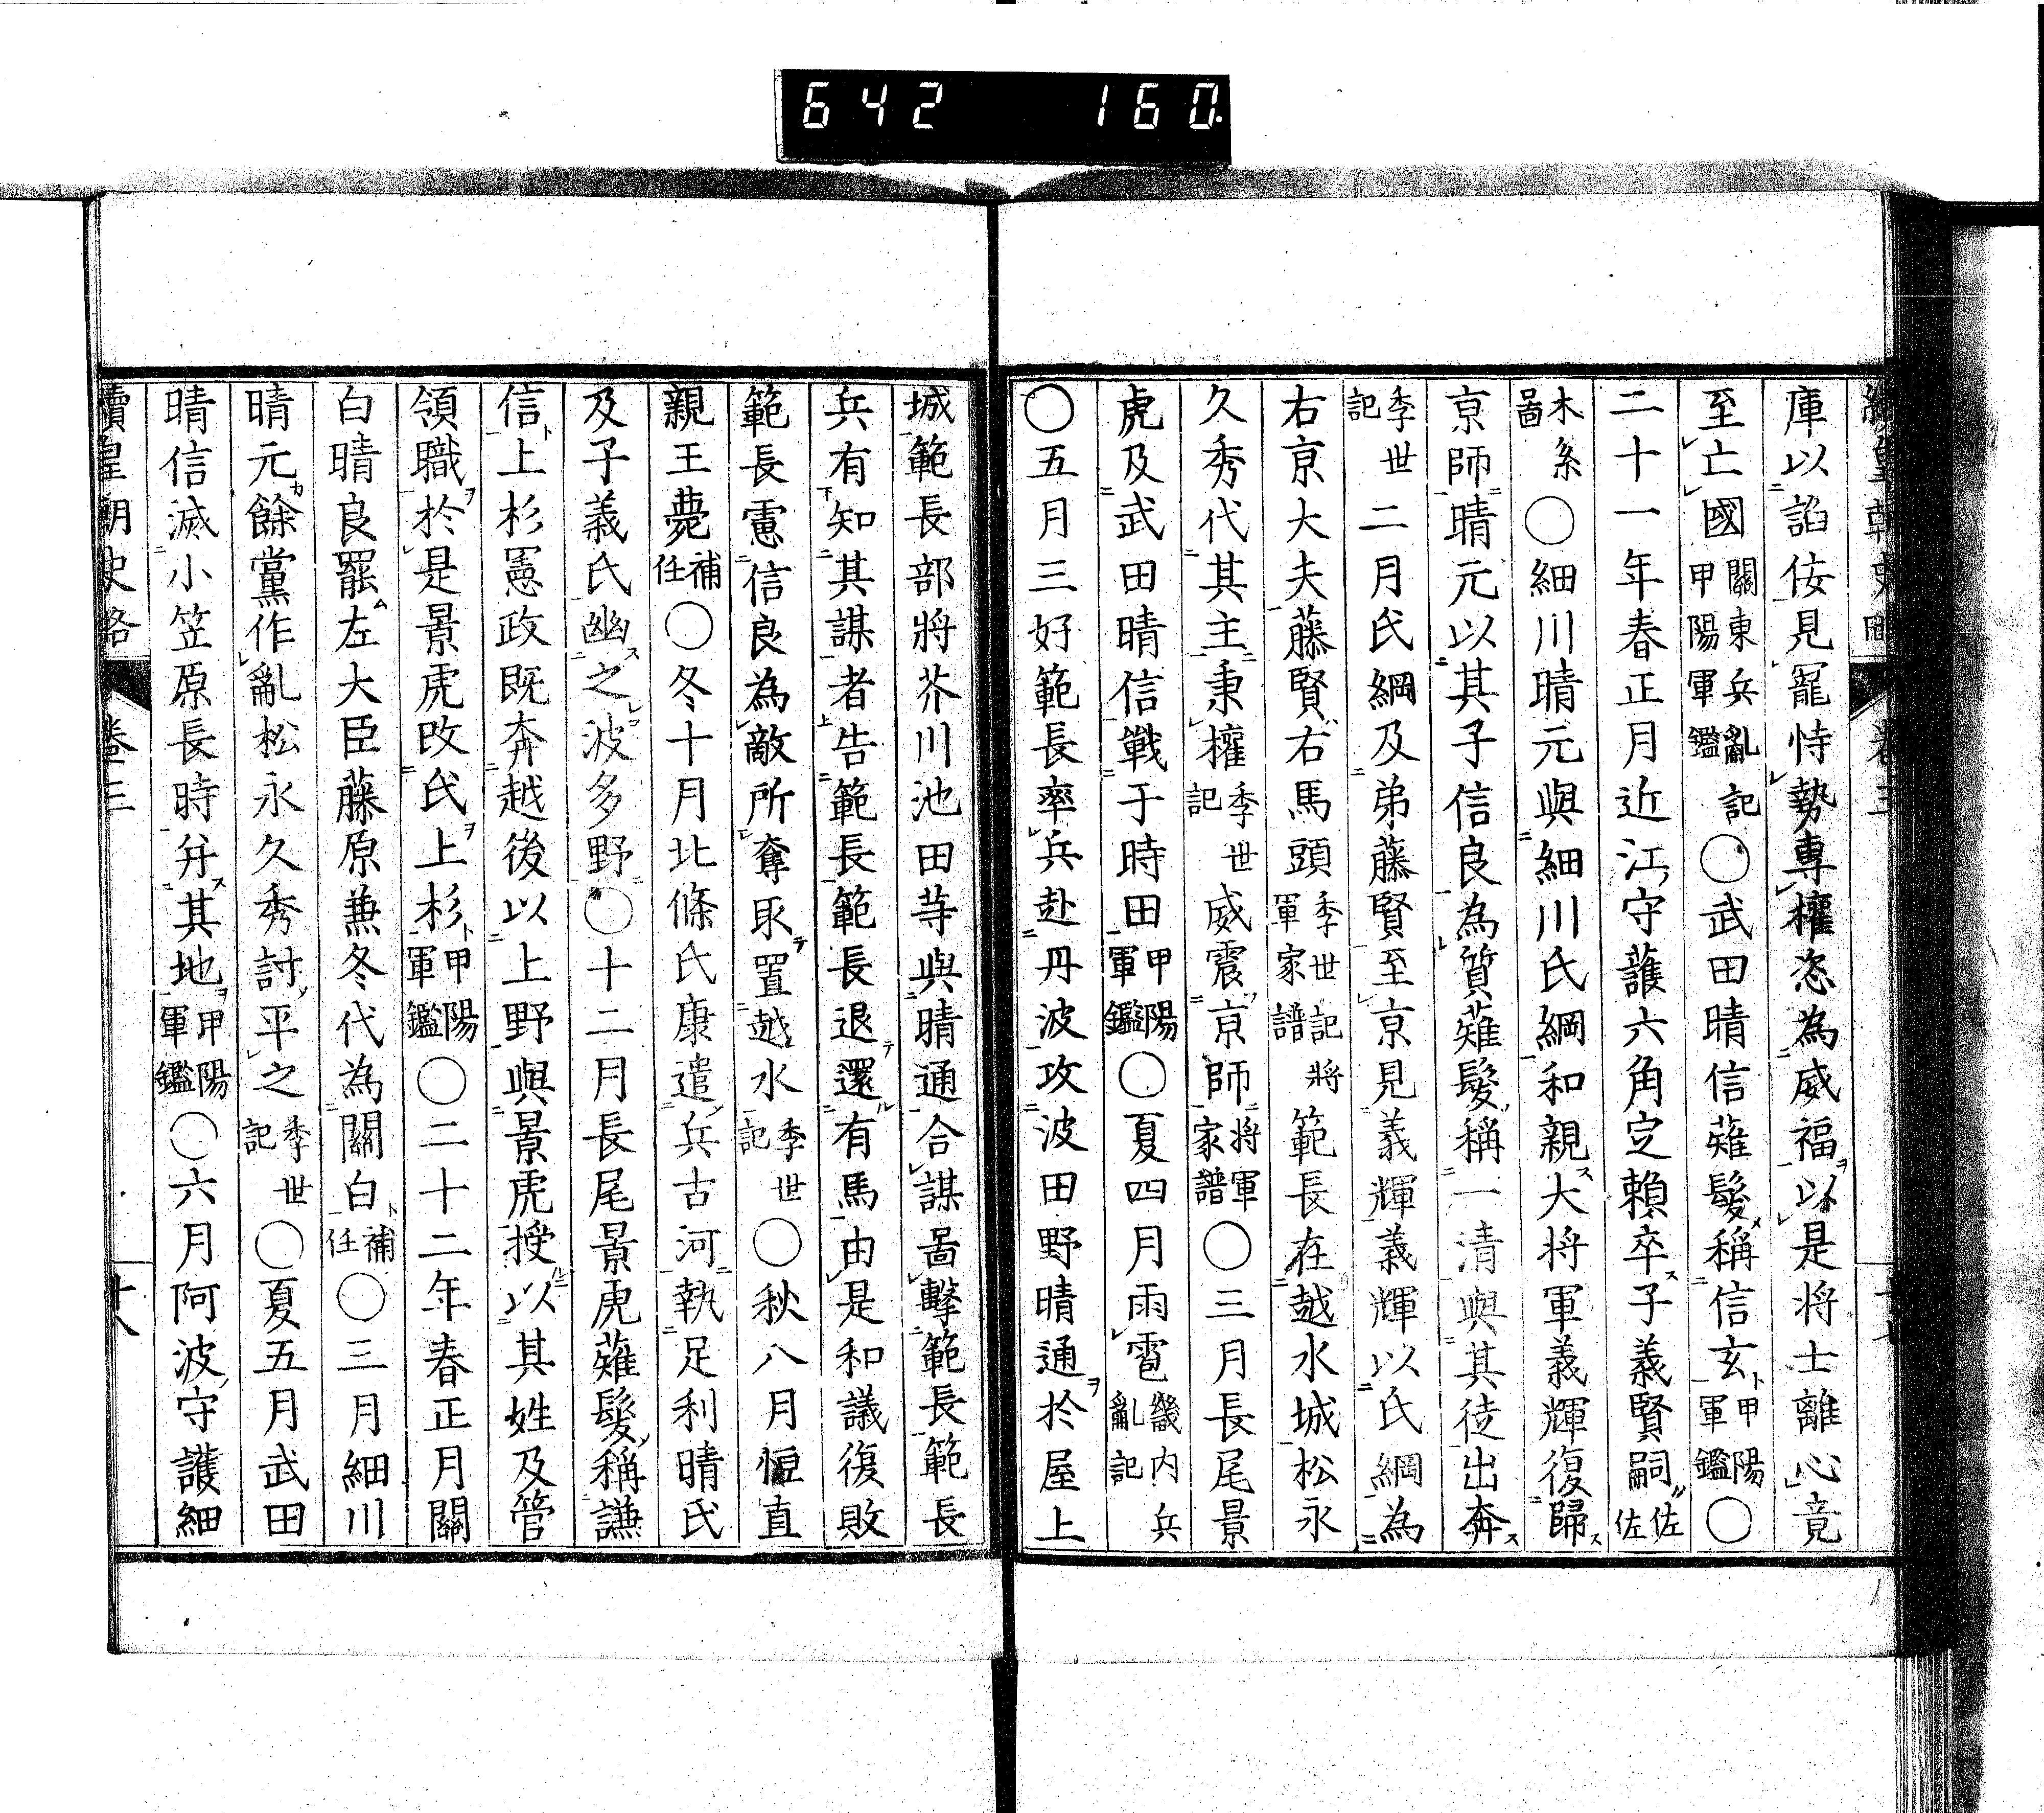 642 160.
庫以諂佞見寵恃勢專權恣為威福以是将士離心竟
至亡國關東兵亂記甲陽軍鑑○武田晴信薙髮稱信玄甲陽軍鑑○
二十一年春正月近江守護六角定頼卒子義賢嗣佐佐
木系啚○細川晴元與細川氏綱和親大将軍義輝復歸
京師晴元以其子信良為質薙髮稱一清與其徒出奔
季世記二月氏綱及弟藤賢至京見義輝義輝以氏綱為
右京大夫藤賢右馬頭季世記將軍家譜範長在越水城松永
久秀代其主秉權季世記威震京師將軍家譜○三月長尾景
虎及武田晴信戰于時田甲陽軍鑑○夏四月雨雹畿内兵亂記
○五月三好範長率兵赴丹波攻波田野晴通於屋上
城範長部將芥川池田等與晴通合謀啚擊範長範長
兵有知其謀者告範長範長退還有馬由是和議復敗
範長憲信良為敵所奪取置越水季世記○秋八月恒直
親王薨補任○冬十月北條氏康遣兵古河執足利晴氏
及子義氏幽之波多野○十二月長尾景虎薙髮稱謙
信上杉憲政既奔越後以上野與景虎授以其姓及管
領職於是景虎改氏上杉甲陽軍鑑○二十二年春正月關
白晴良罷左大臣藤原兼冬代為關白補任○三月細川
晴元餘黨作亂松永久秀討平之季世記○夏五月武田
晴信滅小笠原長時并其地甲陽軍鑑○六月阿波守護細
續皇朝史略 卷三 十八